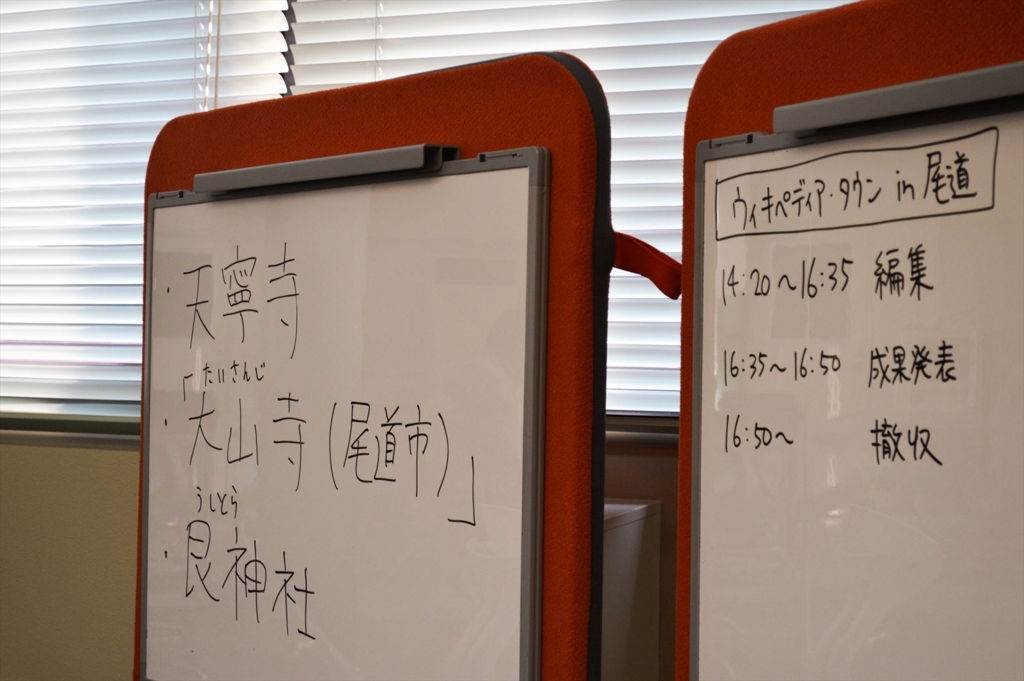 ・天寧寺
たいさんじ
・「大山寺(尾道市)」
うしとら
・艮神社
ウィキペディア・タウン in 尾道
14:20～16:35 編集
16:35～16:50 成果発表
16:50～ 撤収